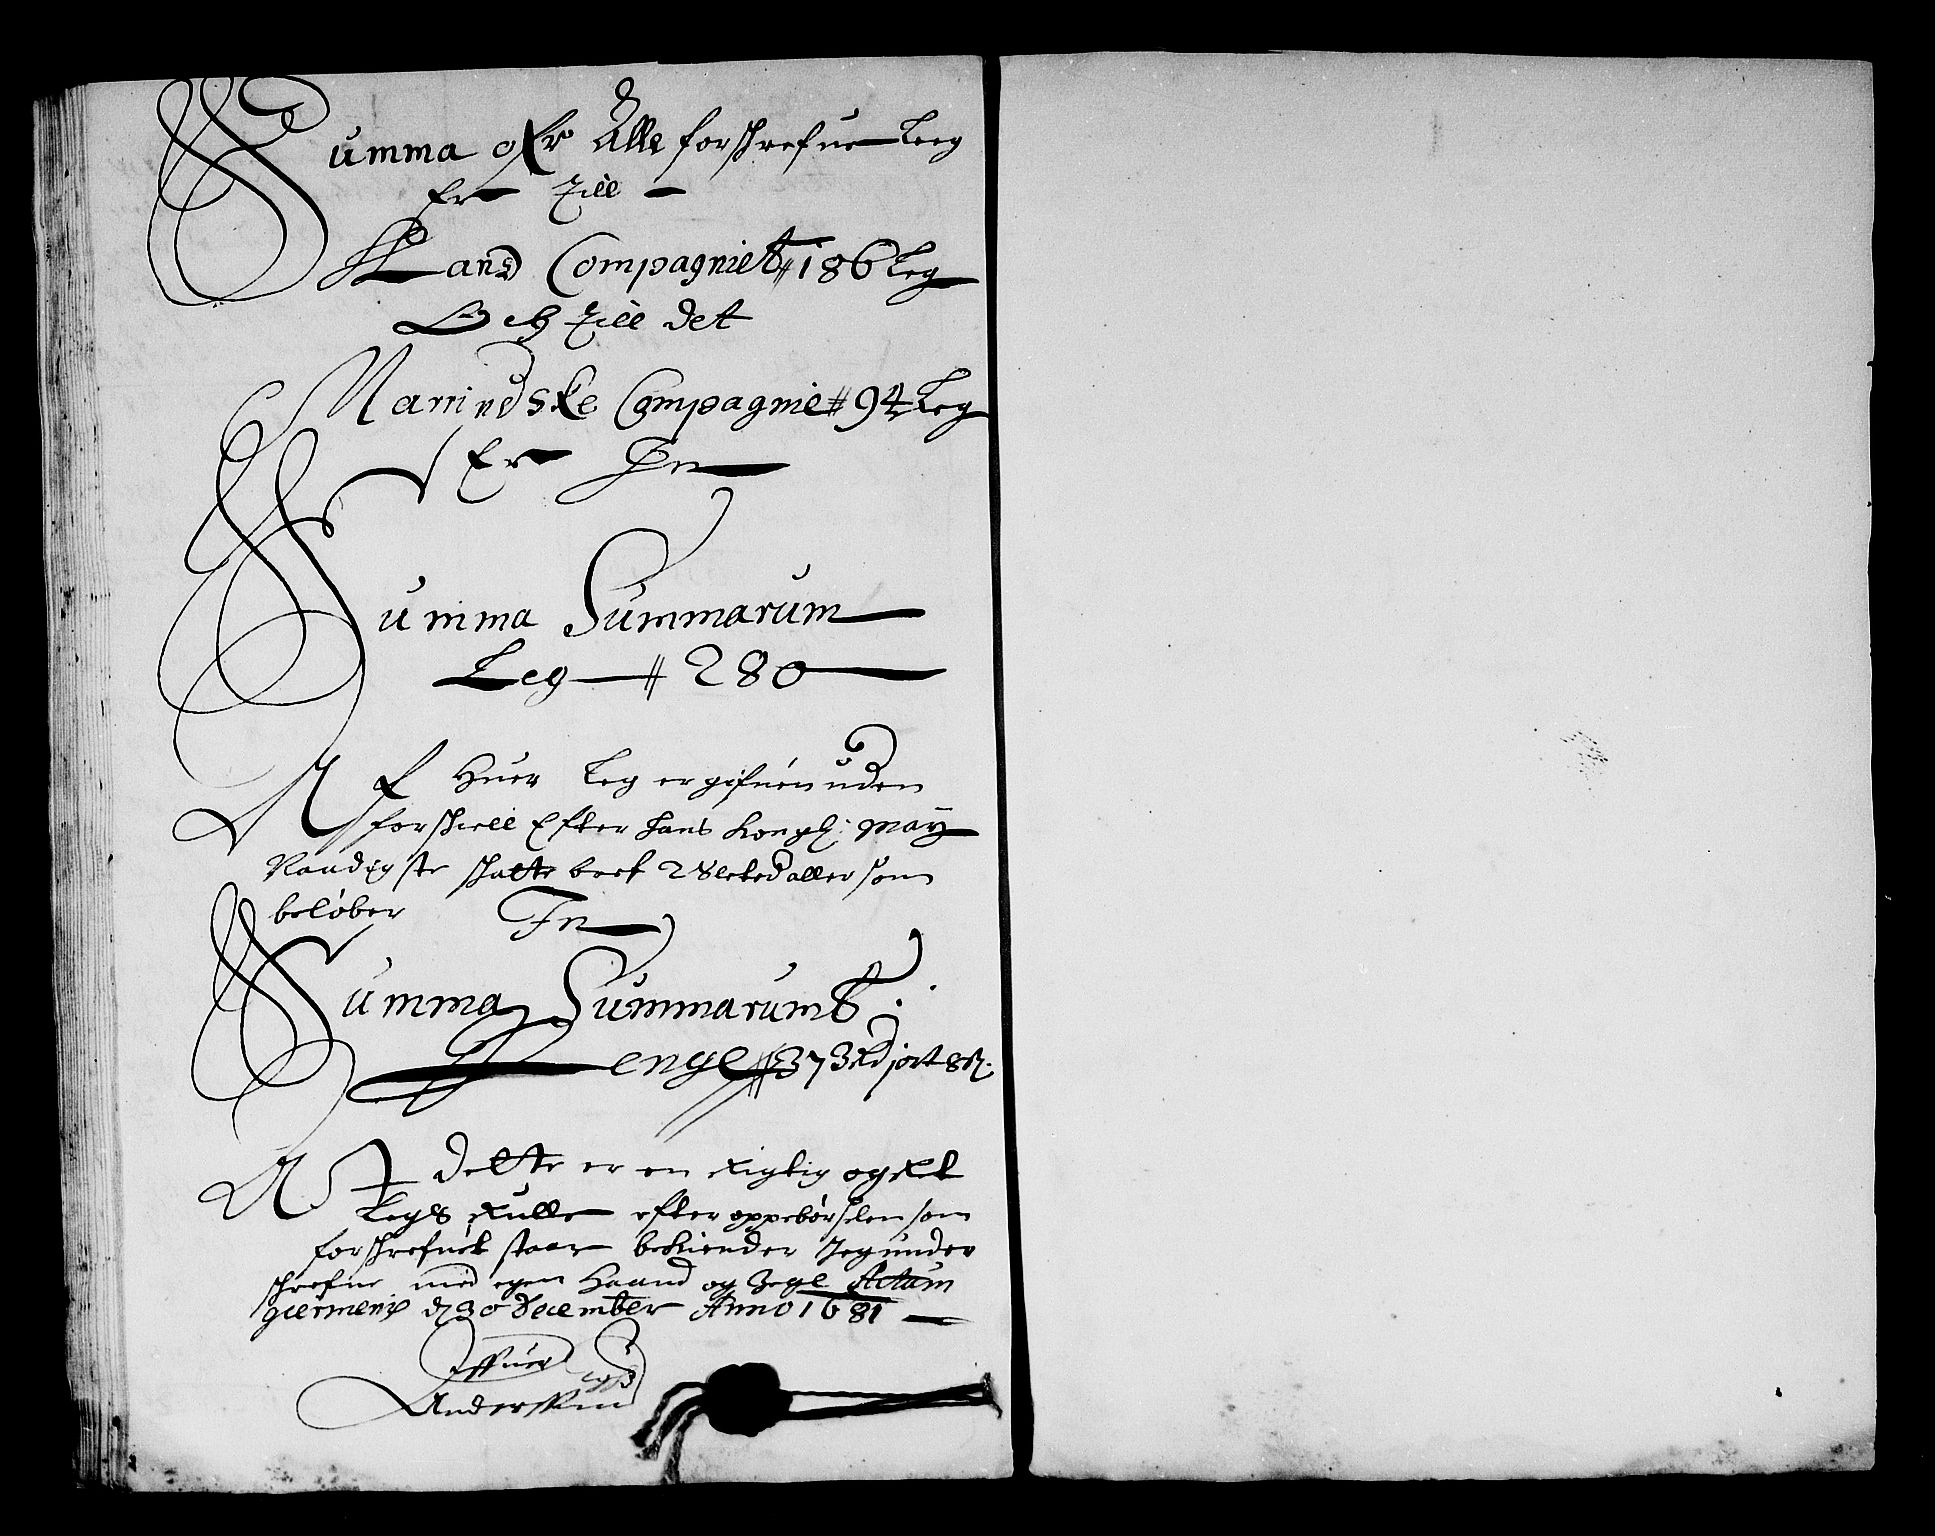 Summa ofr Alle forschrefne Leeg
Er Till
Land Compagniet 186 Leg
Och Till det
Marindske Compagnie 94 Leg
Er In
Summa Summarum
Leg 280
Af Huer Leg er gifuen uden
forschiell Efter Hans Kongl: May
Naadigste schatte bref 2 Sletedaller som
beløber In
Summa Summarums
Penge 373 Rd jort 8 ß:
At dette er en Rigtig og Ret
Legs Rulle efter oppebørselen som
forschrefuet staar bekiender Jeg under
schrefne med egen Haand og Zegl Actum
d 30 December Anno 1681
Iffuer
Anderssen